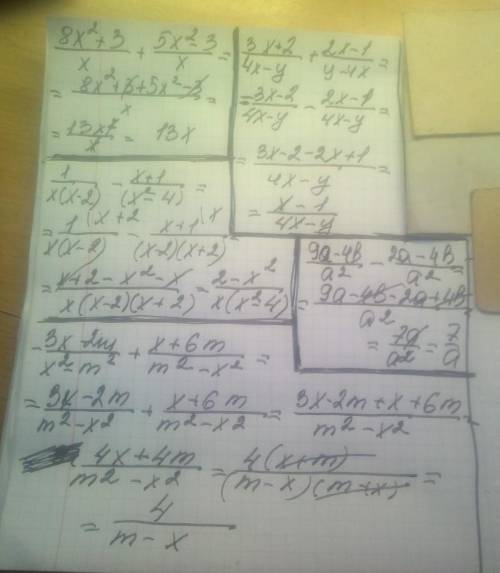 (8x²+3)/x + (5x²-3)/x =
= (8x²+3+5x²-3)/x =
= 13x²/x = 13x
(3x+2)/(4x-y) + (2x-1)/(y-4x) =
= (3x-2)/(4x-y) - (2x-1)/(4x-y) =
= (3x-2-2x+1)/(4x-y) =
= (x-1)/(4x-y)
1/(x(x-2)) - (x+1)/(x²-4) =
= 1/(x(x-2)) (x+2 - (x+1)/((x-2)(x+2)) (x =
= (x+2-x²-x)/(x(x-2)(x+2)) = (2-x²)/(x(x²-4))
(9a-4b)/a² - (2a-4b)/a² =
= (9a-4b-2a+4b)/a² =
= 7a/a² = 7/a
- (3x-2m)/(x²-m²) + (x+6m)/(m²-x²) =
= (3x-2m)/(m²-x²) + (x+6m)/(m²-x²) = (3x-2m+x+6m)/(m²-x²) =
(4x+4m)/(m²-x²) = 4(x+m)/((m-x)(m+x)) =
= 4/(m-x)